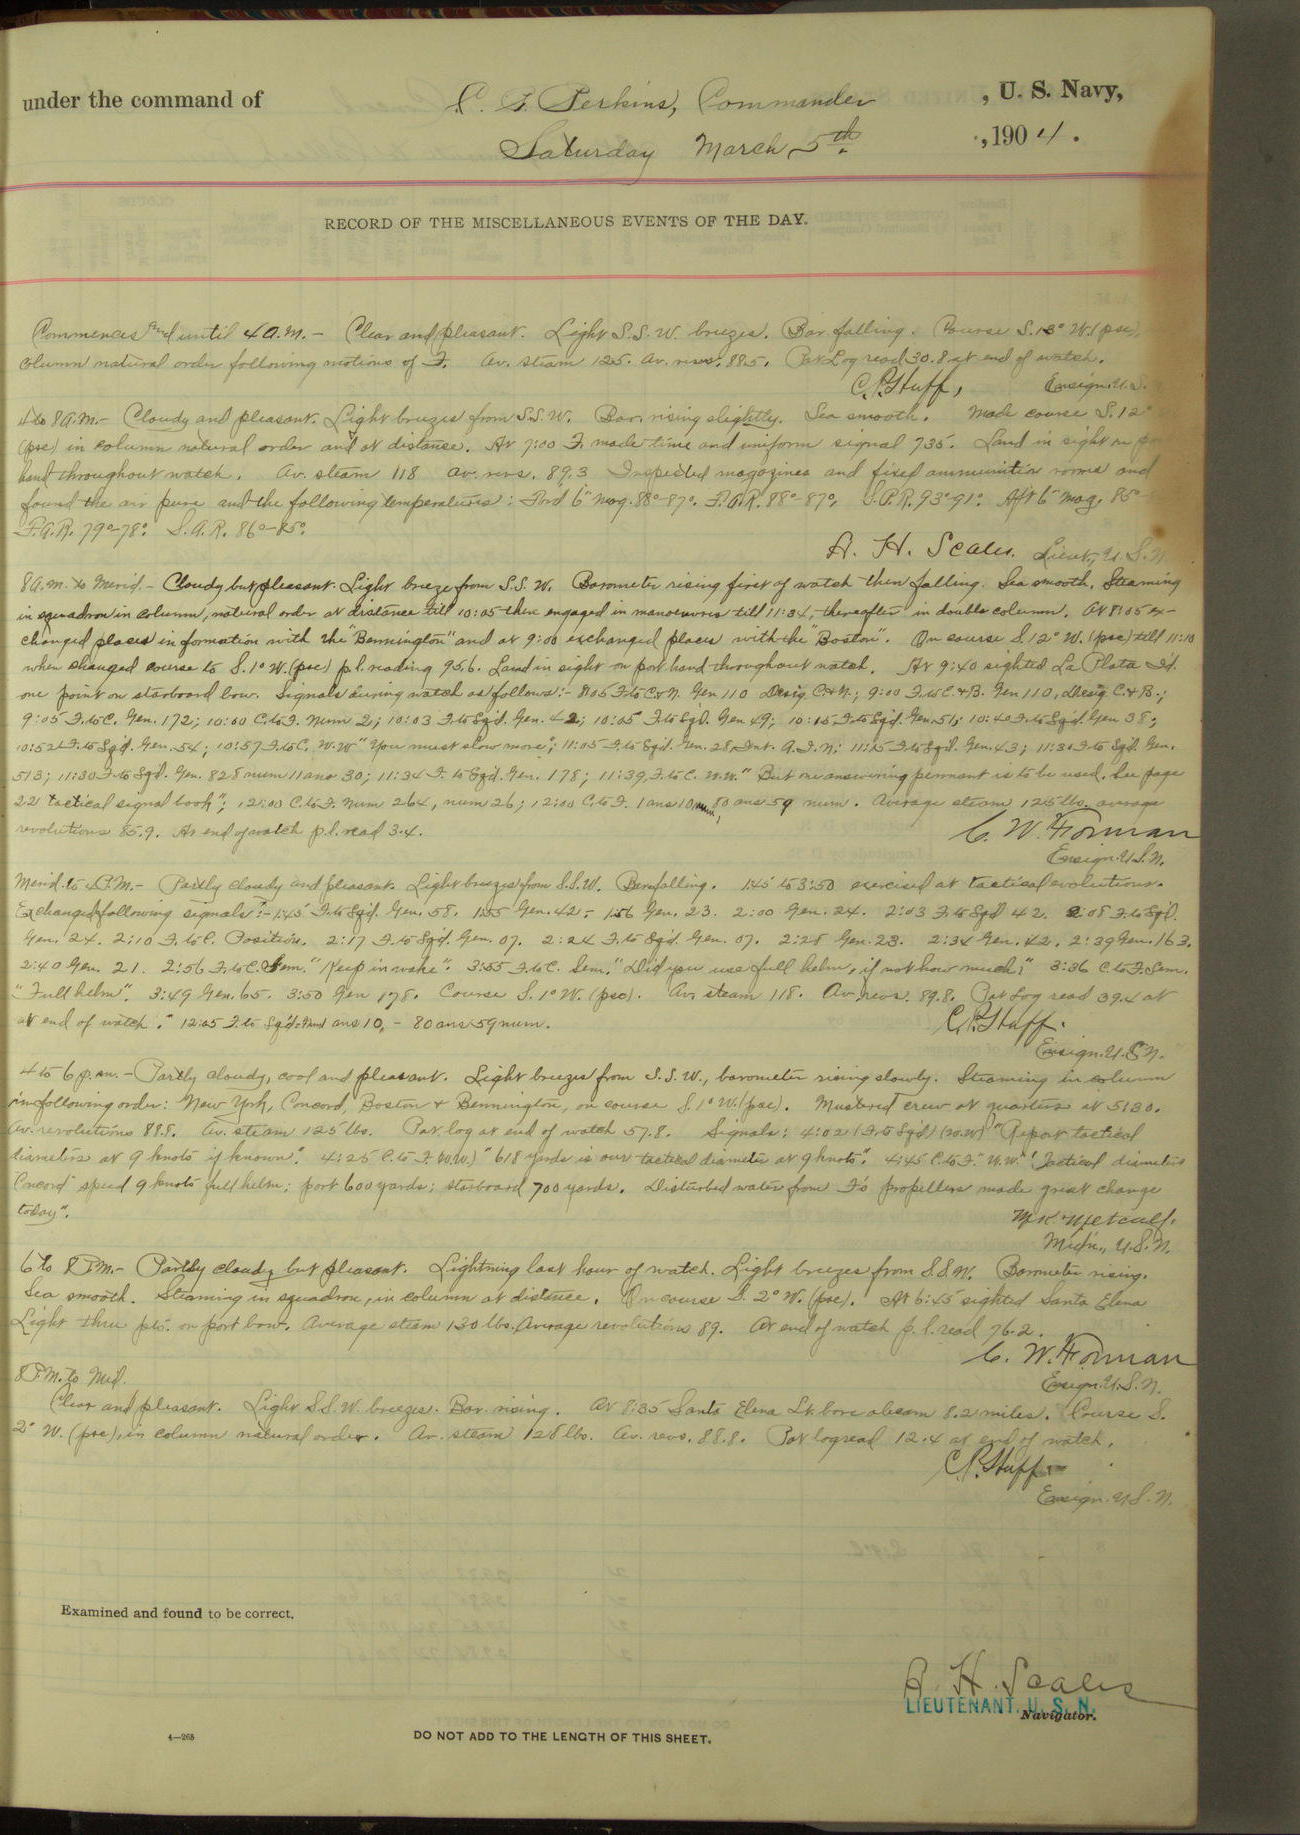 under the command of C. F. Perkins, Commander , U. S. Navy,
Saturday March 5th , 1904.
RECORD OF THE MISCELLANEOUS EVENTS OF THE DAY.
Commences and until 4 A.M. – Clear and pleasant. Light S.S.W. breezes. Bar. falling. Course S. 13° W. (psc),
column natural order following motions of F. Av. steam 125. Av. revs. 88.5. Pat Log read 30.8 at end of watch.
C.P. Huff, Ensign. U.S.
4 to 8 A.M. – Cloudy and pleasant. Light breezes from S.S.W. Bar. rising slightly. Sea smooth. Made course S. 12°
(psc) in column natural order and at distance. At 7:00 F. made time and uniform signal 735. Land in sight on
hand throughout watch. Av. steam 118 av. revs. 89.3 Inspected magazines and fixed ammunition rooms and
found the air pure and the following temperatures: Ford 6" mag. 88°-87°. F.A.R. 88°-87°, S.A.R. 93°-91°. Aft 6" mag. 85°-
F.A.R. 79°-78°. S.A.R. 86°-85°.
A. H. Scales. Lieut., U.S.N.
8 A.M. to Merid – Cloudy but pleasant. Light breeze from S.S.W. Barometer rising first of watch then falling. Sea smooth. Steaming
in squadron in column, natural order at distance till 10:05 then engaged in manoeuvres till 11:34, thereafter in double column. At 8:05 ex-
changed places in formation with the "Bennington" and at 9:00 exchanged places with the "Boston". On course S. 12° W. (psc) till 11:10
when changed course to S. 1° W. (psc) p.l. reading 95.6. Land in sight on port hand throughout watch. At 9:40 sighted La Plata Id.
one point on starboard bow. Signals during watch as follows:– 8:05 F. to C. & N. Gen 110 Desig. C. & N.; 9:00 F. to C. & B. Gen 110, Desig C. & B.;
9:05 F. to C. Gen. 172; 10:00 C. to F. Num 2; 10:03 F. to Sq'd. Gen. 42; 10:05 F. to Sq'd. Gen 49; 10:15 F. to Sq'd. Gen. 51; 10:40 F. to Sq'd. Gen 38;
10:52 F. to Sq'd. Gen. 54; 10:57 F. to C. W.W. "You must slow more"; 11:05 F. to Sq'd. Gen. 28, Int. A.F.N; 11:15 F. to Sq'd. Gen. 43; 11:30 F. to Sq'd. Gen.
513; 11:30 F. to Sq'd. Gen. 828 num 11 ans 30; 11:34 F. to Sq'd. Gen. 178; 11:39, F. to C. W.W. "But one answering pennant is to be used. See page
22 tactical signal book"; 12:00 C. to F. Num 264, num 26; 12:00 C. to F. 1 ans 10 num, 80 ans 59 num. Average steam 125 lbs. average
revolutions 85.9. At end of watch p.l. read 3.4.
C. W. Forman
Ensign. U.S.N.
Merid. to 4 P.M. – Partly cloudy and pleasant. Light breezes from S.S.W. Bar. falling. 1:45 to 3:50 exercised at tactical evolutions.
Exchanged following signals:– 1:45 F. to Sq'd. Gen. 58. 1:55 Gen. 42. 1:56 Gen. 23. 2:00 Gen. 24. 2:03 F. to Sq'd 42. 2:08 F. to Sq'd.
Gen. 24. 2:10 F. to C. Position. 2:17 F. to Sq'd. Gen. 07. 2:24 F. to Sq'd. Gen. 07. 2:28 Gen. 23. 2:34 Gen. 42. 2:39 Gen. 163.
2:40 Gen. 21. 2:56 F. to C. Sem. "Keep in wake". 3:35 F. to C. Sem. "Did you use full helm, if not how much;" 3:36 C. to F. Sem.
"Full helm". 3:49 Gen. 65. 3:50 Gen 178. Course S. 1° W. (psc). Av. steam 118. Av. revs. 89.8. Pat Log read 39.4 at
at end of watch. 12:05 F. to Sq'd. ans 10, – 80 ans 59 num.
C.P. Huff.
Ensign. U.S.N.
4 to 6 p.m. – Partly cloudy, cool and pleasant. Light breezes from S.S.W., barometer rising slowly. Steaming in column
in following order: New York, Concord, Boston & Bennington, on course S. 1° W. (psc). Mustered crew at quarters at 5:30.
Av. revolutions 88.8. Av. steam 125 lbs. Pat. log at end of watch 57.8. Signals: 4:02 (F. to Sq'd) (W.W.) "Report tactical
diameters at 9 knots if known". 4:25 C. to F. (W.W.) "618 yards is our tactical diameter at 9 knots". 4:45 C. to F. "W.W." "Tactical diameters
Concord speed 9 knots full helm; port 600 yards; starboard 700 yards. Disturbed water from F's propellers made great change
today".
M.K. Metcalf.
Mid'n., U.S.N.
6 to 8 P.M. – Partly cloudy but pleasant. Lightning last hour of watch. Light breezes from S.S.W. Barometer rising.
Sea smooth. Steaming in squadron, in column at distance. On course S. 2° W. (psc). At 6:45 sighted Santa Elena
Light thru pts. on port bow. Average steam 130 lbs. Average revolutions 89. At end of watch p.l. read 76.2.
C. W. Forman
Ensign. U.S.N.
8 P.M. to Mid.
Clear and pleasant. Light S.S.W. breezes. Bar. rising. At 8:35 Santa Elena Lt. bore abeam 8.2 miles. Course S.
2° W. (psc), in column natural order. Av. steam 128 lbs. Av. revs. 88.8. Pat log read 12.4 at end of watch.
C.P. Huff
Ensign. U.S.N.
Examined and found to be correct.
A. H. Scales
LIEUTENANT. U. S. N.
Navigator.
4—268 DO NOT ADD TO THE LENGTH OF THIS SHEET.